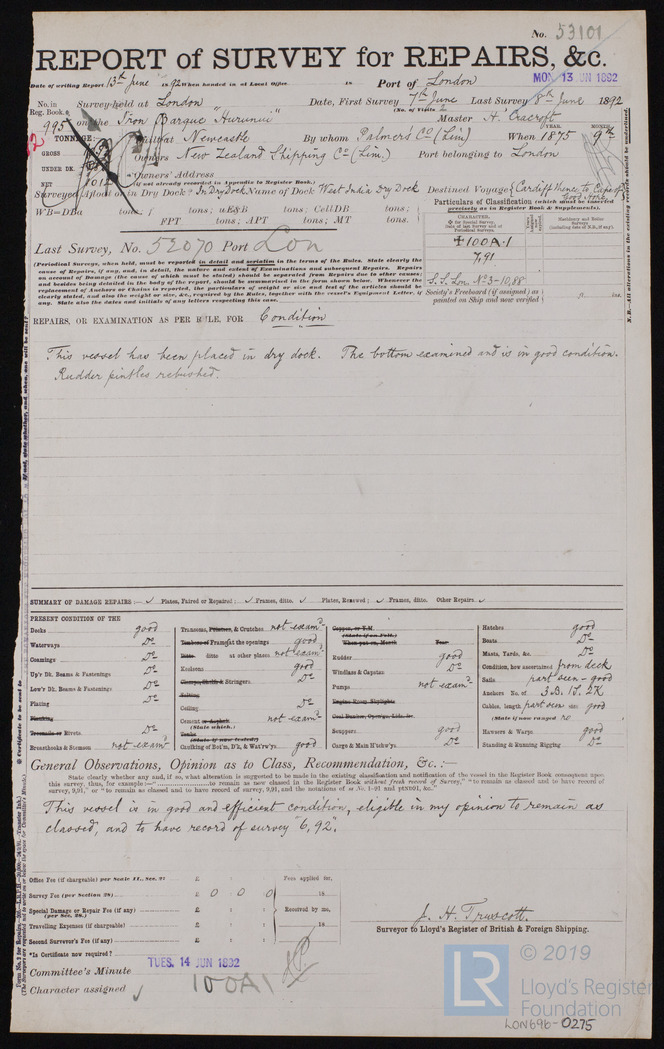 No. 53101
REPORT of SURVEY for REPAIRS, &c.
Date of writing Report 13th June 1892 When handed in at Local Office 18 Port of London
MON 13 JUN 1892
No. in Reg. Book. Survey held at London Date, First Survey 7th June Last Survey 8th June 1892
(No. of Visits 2)
995 on the Iron Barque "Hurunui" Master H. Eracroft
TONNAGE: Built at Newcastle By whom Palmers Co (Lim) When 1875 YEAR. MONTH. 9th
GROSS Owners New Zealand Shipping Co (Lim.) Port belonging to London
UNDER DK. Owners' Address
NET 1012 (if not already recorded in Appendix to Register Book.)
Surveyed Afloat or in Dry Dock? In Dry Dock Name of Dock West India Dry Dock Destined Voyage Cardiff thence to Cape of Good Hope
WB=DBa tons; f tons; uE&B tons; CellDB tons;
FPT tons; APT tons; MT tons.
Particulars of Classification (which must be inserted precisely as in Register Book & Supplements).
CHARACTER,
✠ for Special Survey.
Date of last Survey and of Periodical Surveys.
Machinery and Boiler Surveys (including date of N.B., if any).
✠100A.1
7,91
S.S. Lon. No 3-10,88
Society's Freeboard (if assigned) as printed on Ship and now verified ft. ins.
Last Survey, No. 52070 Port Lon
(Periodical Surveys, when held, must be reported in detail and seriatim in the terms of the Rules. State clearly the
cause of Repairs, if any, and, in detail, the nature and extent of Examinations and subsequent Repairs. Repairs
on account of Damage (the cause of which must be stated) should be separated from Repairs due to other causes;
and besides being detailed in the body of the report, should be summarised in the form shown below. Whenever the
replacement of Anchors or Chains is reported, the particulars of weight or size and test of the articles should be
clearly stated, and also the weight or size, &c., required by the Rules, together with the vessel's Equipment Letter, if
any. State also the dates and initials of any letters respecting this case.
REPAIRS, OR EXAMINATION AS PER RULE, FOR Condition
This vessel has been placed in dry dock. The bottom examined and is in good condition.
Rudder pintles rebushed.
SUMMARY OF DAMAGE REPAIRS:— ✓ Plates, Faired or Repaired; ✓ Frames, ditto. ✓ Plates, Renewed; ✓ Frames, ditto. Other Repairs ✓
PRESENT CONDITION OF THE
Decks good
Waterways Do
Coamings Do
Up'r Dk. Beams & Fastenings Do
Low'r Dk. Beams & Fastenings Do
Plating Do
Planking
Treenails or Rivets. Do
Breasthooks & Stemson not examd
Transoms, Pointers, & Crutches not examd
Timbers of Frame at the openings good
Ditto ditto at other places not examd
Keelsons good
Clamps, Shelfs & Stringers Do
Salting
Ceiling Do
Cement or Asphalt (State which.) not examd
Tanks (State if now tested)
Caulking of Bot'm, D'k, & Wat'rw'ys good
Copper, or Y.M. (State if on Felt.)
When put on, Month Year
Rudder good
Windlass & Capstan Do
Pumps not examd
Engine Room Skylights
Coal Bunker, Openings, Lids, &c.
Scuppers good
Cargo & Main H'tchw'ys Do
Hatches good
Boats Do
Masts, Yards, &c. Do
Condition, how ascertained from deck
Sails part seen - good
Anchors No. of 3B. 1S. 2K
Cables, length part seen size good
(State if now ranged no
Hawsers & Warps good
Standing & Running Rigging Do
General Observations, Opinion as to Class, Recommendation, &c.:—
State clearly whether any and, if so, what alteration is suggested to be made in the existing classification and notification of the vessel in the Register Book consequent upon
this survey, thus, for example:—"to remain as now classed in the Register Book without fresh record of Survey," "to remain as classed and to have record of
survey, 9,91," or "to remain as classed and to have record of survey, 9,91, and the notations of ss No. 1-91 and ptND91, &c."
This vessel is in good and efficient condition, eligible in my opinion to remain as
classed, and to have record of survey "6,92".
Office Fee (if chargeable) per Scale II., Sec. 27 £ : : Fees applied for,
Survey Fee (per Section 28) £ 0 0 0 18
Special Damage or Repair Fee (if any) (per Sec. 28.) £ : : Received by me,
Travelling Expenses (if chargeable) £ : : 18
Second Surveyor's Fee (if any) £ : :
*Is Certificate now required?
J. H. Truscott.
Surveyor to Lloyd's Register of British & Foreign Shipping.
Committee's Minute TUES. 14 JUN 1892
Character assigned 100A1
© 2019
LR
Lloyd's Register
Foundation
LON696-0275
N.B.—All alterations in the existing records should be underlined.